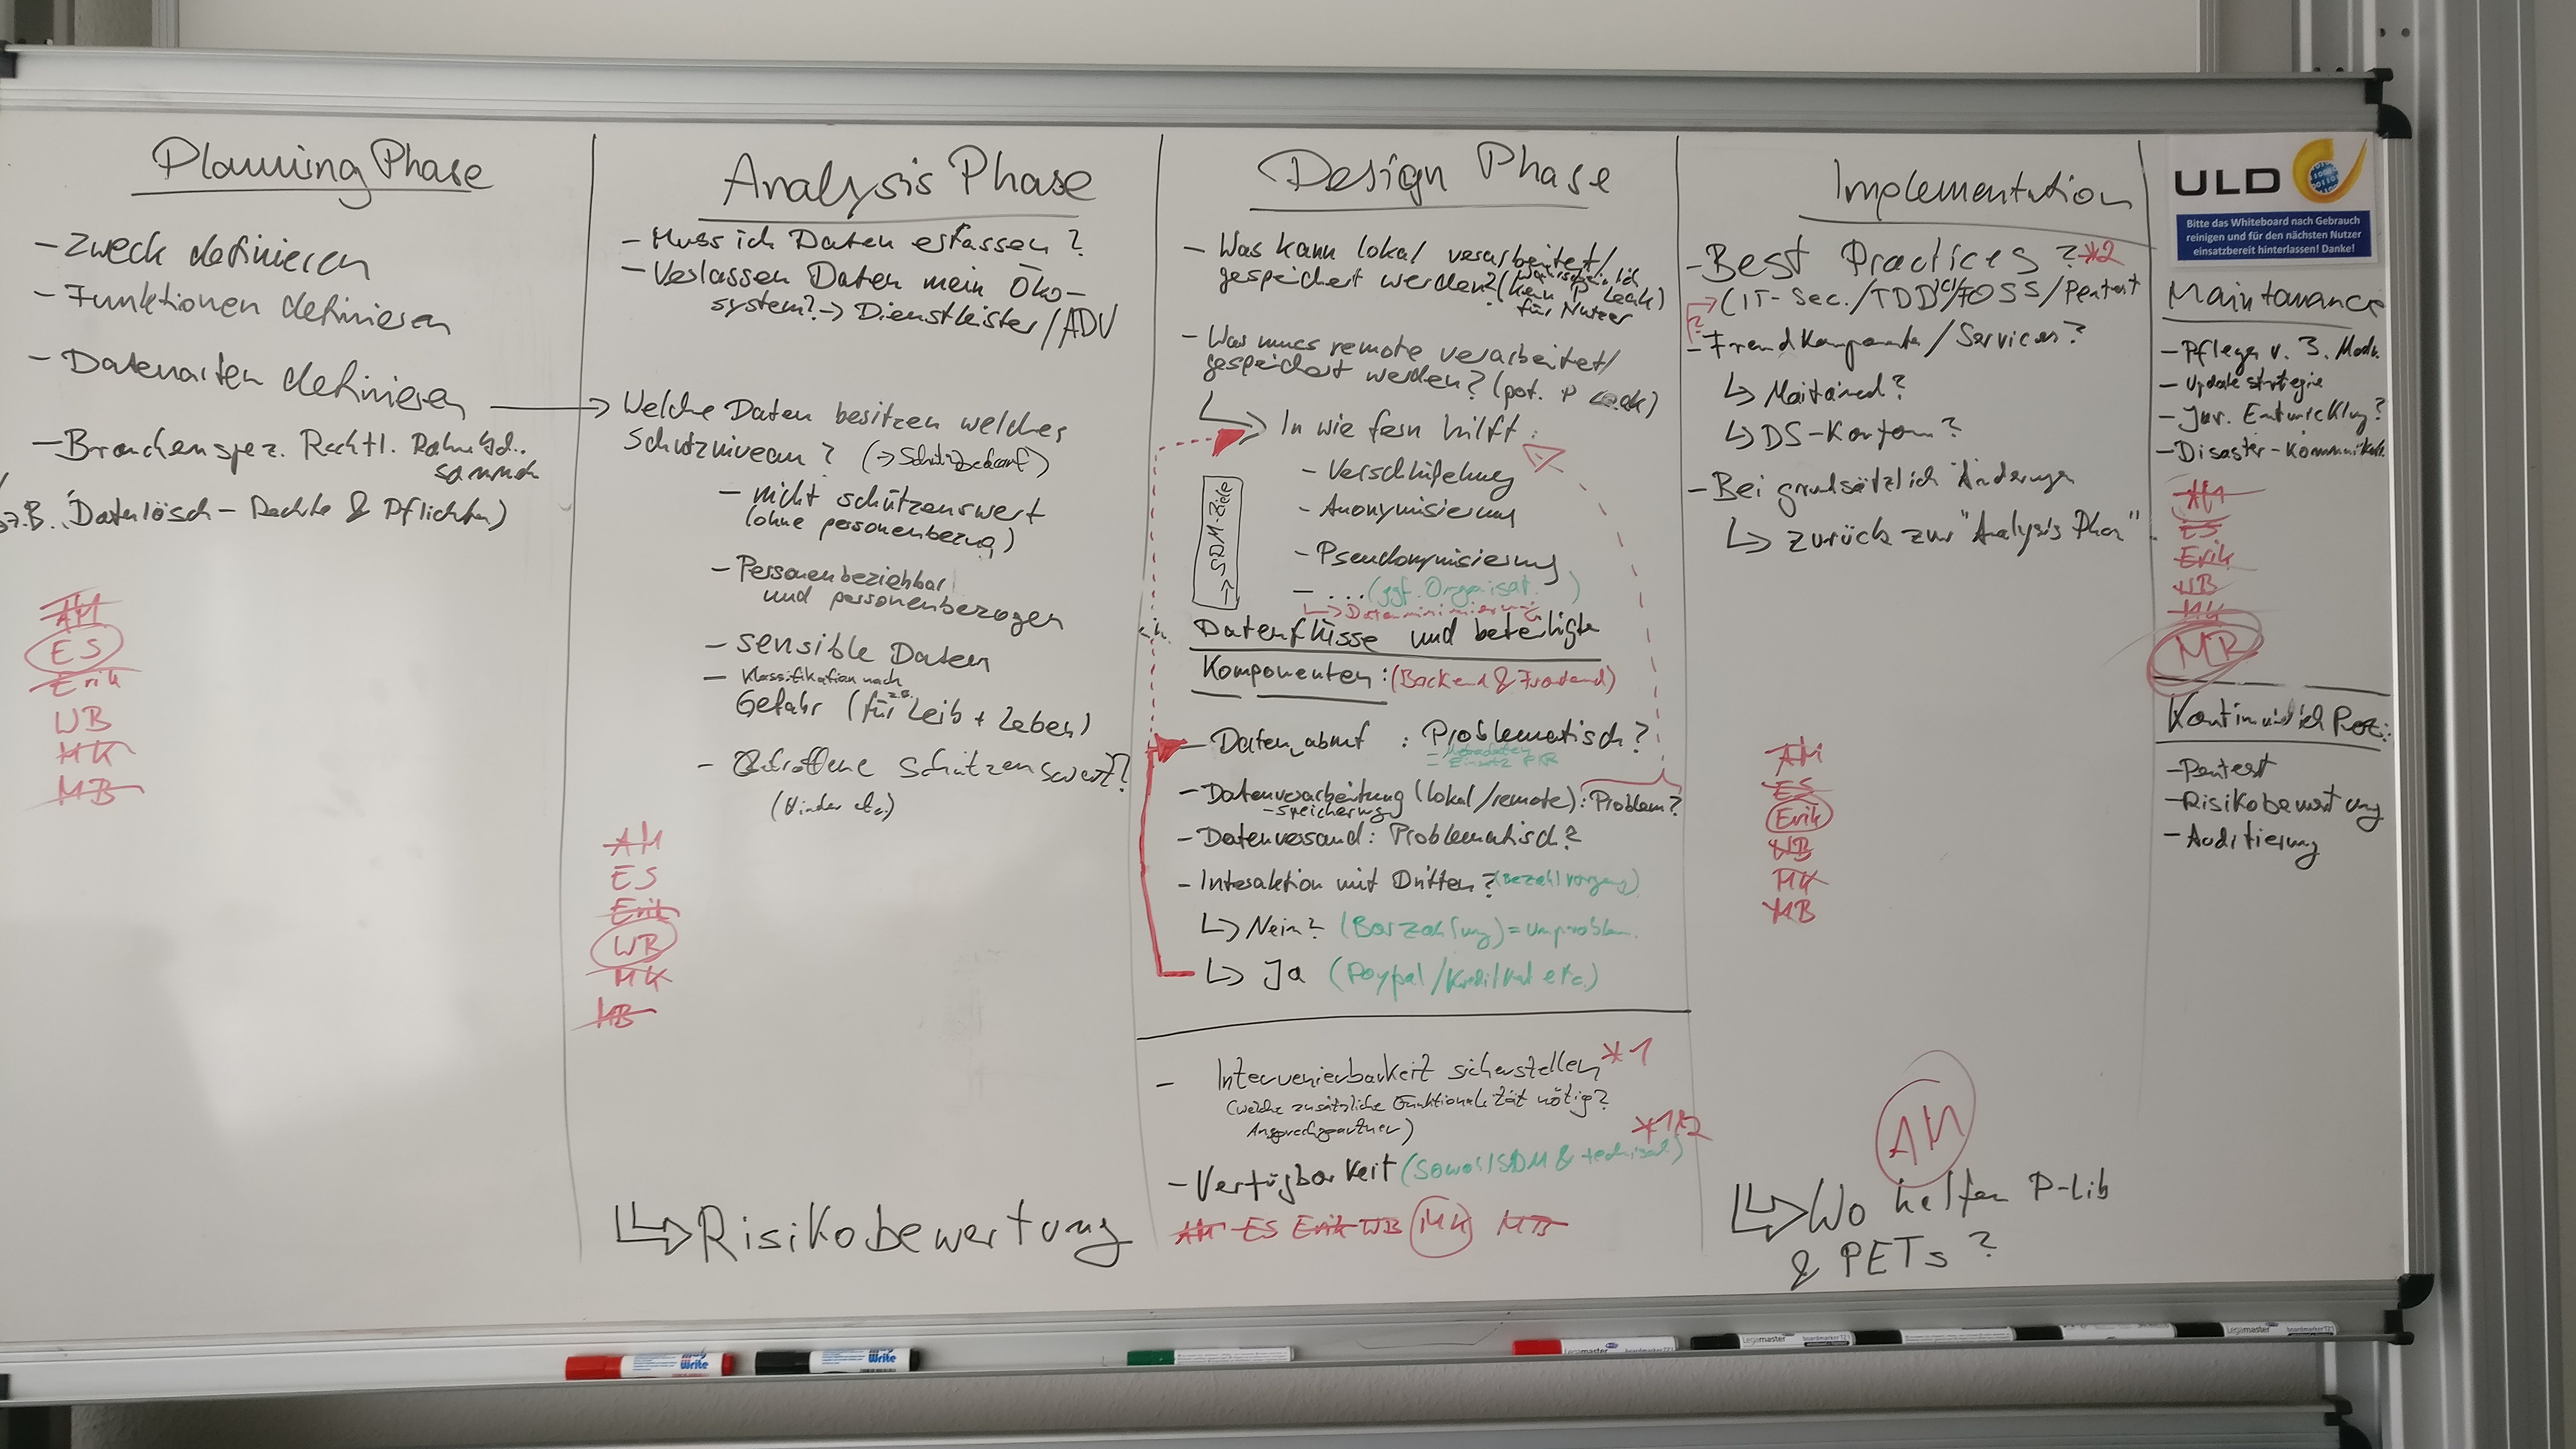 Planning Phase
- Zweck definieren
- Funktionen definieren
- Datenarten definieren
- Branchenspez. Rechtl.
z.B. Datenlösch- Rechte & Pflichten)
AM
ES
Erik
WB
MK
MB
Analysis Phase
- Muss ich Daten erfassen?
- Verlassen Daten mein Öko-
system? -> Dienstleister/ADV
Welche Daten besitzen welches
Schutzniveau? (-> Schutzbedarf)
- nicht schützenswert
(ohne personenbezug)
- Personenbeziehbar
und personenbezogen
- sensible Daten
- Klassifikation nach
Gefahr (für z.B. Leib + Leben)
- Betroffene Schützenswert?
(Kinder etc.)
AM
ES
Erik
WB
MK
MB
Risikobewertung
Design Phase
- Was kann lokal verarbeitet/
gespeichert werden? (wahrscheinlich
kein P Leak)
für Nutzer
- Was muss remote verarbeitet/
gespeichert werden? (pot. P Leak)
In wie fern hilft:
- Verschlüsselung
- Anonymisierung
- Pseudonymisierung
- ... (ggf. Organisat. )
-> Datenminimierung
-> SDM-Ziele
Datenflüsse und beteiligte
Komponenten: (Backend & Frontend)
: Problematisch?
- Datenverarbeitung (lokal/remote): Problem?
- speicherung
- Datenversand: Problematisch?
- Interaktion mit Dritten? (Bezahlvorgang)
Nein? (Barzahlung) = unproblem.
Ja (Paypal/Kreditkart etc.)
- Intervenierbarkeit sicherstellen *1
(welche zusätzliche Funktionalität nötig?
Ansprechpartner)
*1*2
- Verfügbarkeit (Sowohl SDM & technisch)
AM ES Erik WB MK MB
Implementation
- Best Practices? *2
(IT-Sec./TDD/CI/FOSS/Pentest
?
- Fremdkomponenten/Services?
Maitained?
DS-Konform?
- Bei grundsätzlich Änderungen
zurück zur "Analysis Phase"
AM
ES
Erik
WB
MK
MB
AM
Wo helfen P-Lib
& PETs?
ULD
Bitte das Whiteboard nach Gebrauch
reinigen und für den nächsten Nutzer
einsatzbereit hinterlassen! Danke!
Maintanance
- Pflege v. 3. Modu.
- Updatestrategie
- Jur. Entwicklung?
- Disaster-Kommunikat.
AM
ES
Erik
WB
MK
MB
Kontinuierlich Proz.:
- Pentest
- Risikobewertung
- Auditierung
Write
Write
Legamaster boardmarker TZ1
Legamaster boardmarker TZ1
Legamaster boardmarker TZ1